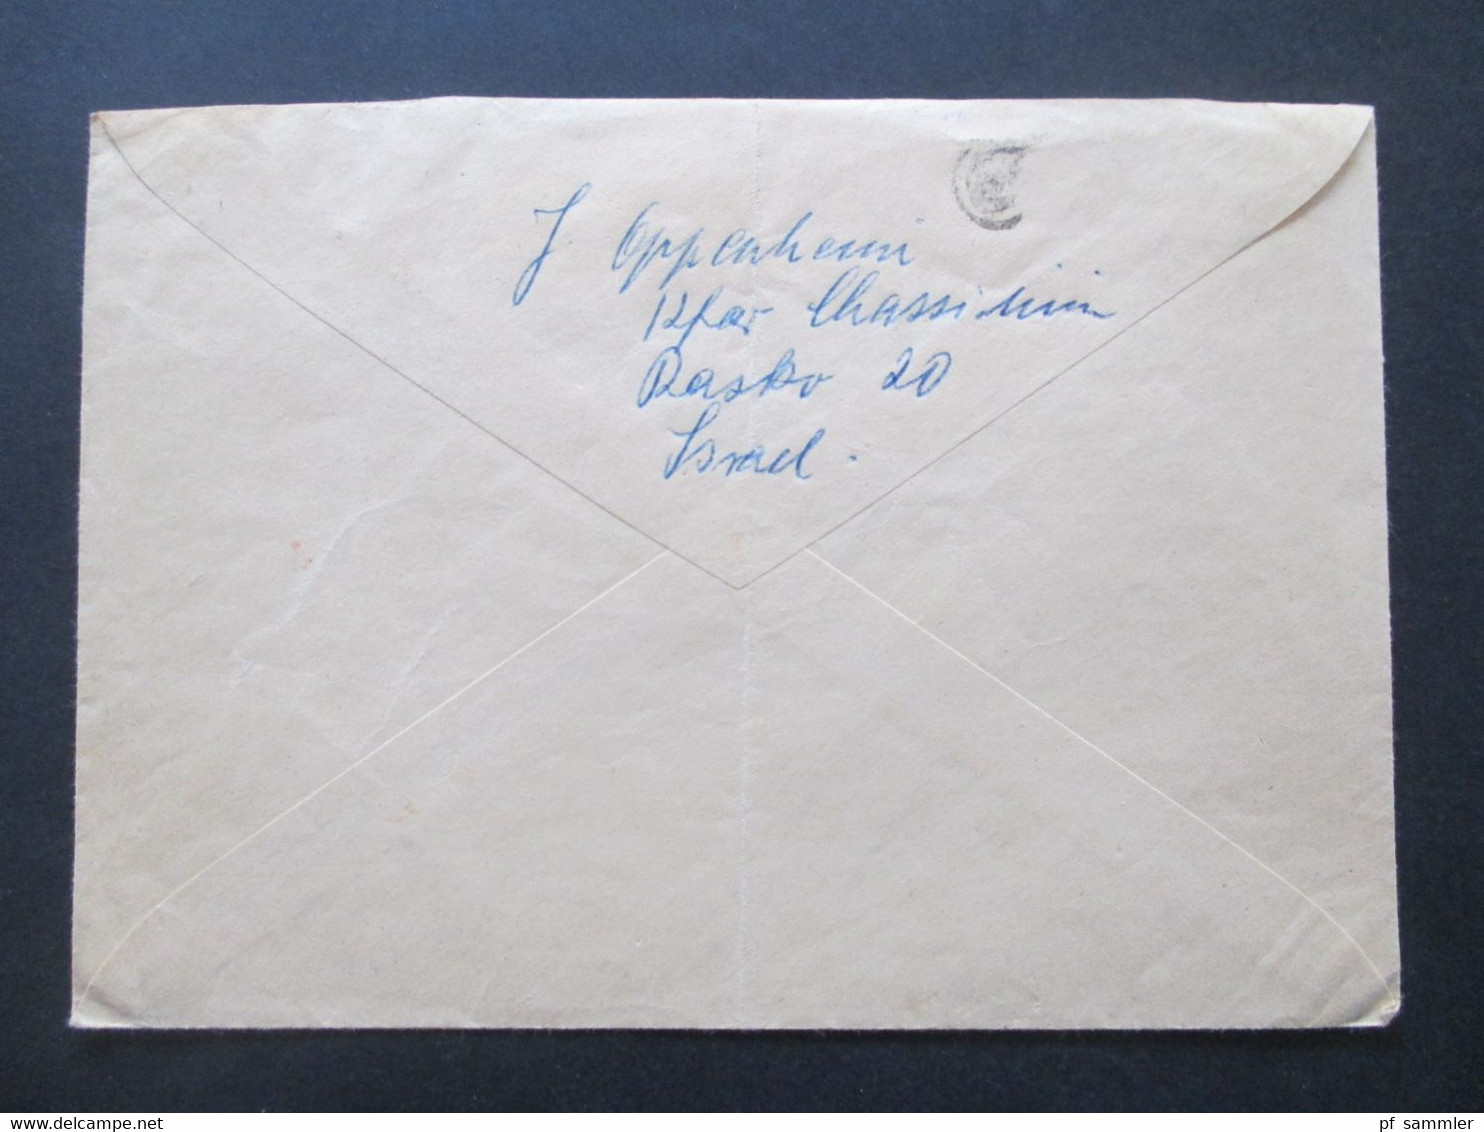 J Oppenheim
Kfar Chassidim
Rasko 20
Israel.
www.delcampe.net
pf_sammler